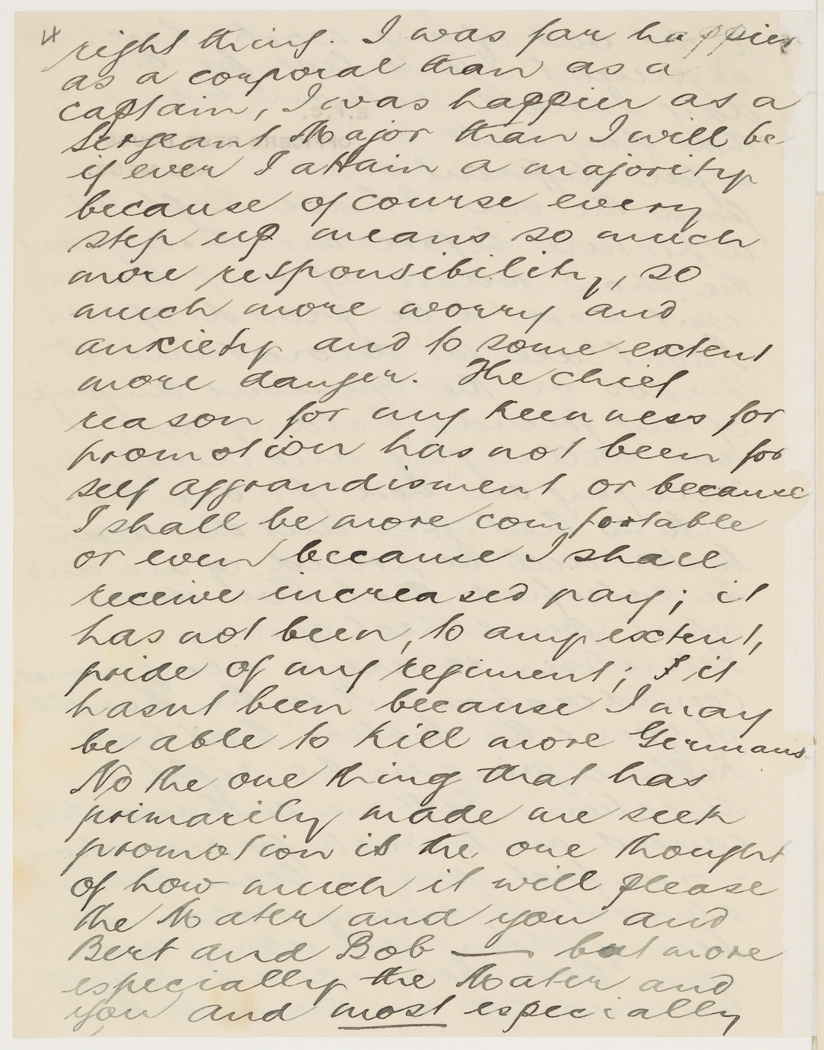 4
right thing. I was far happier
as a corporal than as a
captain, I was happier as a
Sergeant Major than I will be
if ever I attain a majority
because of course every
step up means so much
more responsibility, so
much more worry and
anxiety and to some extent
more danger. The chief
reason for my keenness for
promotion has not been for
self aggrandisment or because
I shall be more comfortable
or even because I shall
receive increased pay; it
has not been, to any extent,
pride of my regiment; it
hasnt been because I may
be able to kill more Germans.
No the one thing that has
primarily made me seek
promotion is the one thought
of how much it will please
the Mater and you and
Bert and Bob — but more
especially the Mater and
you and most especially